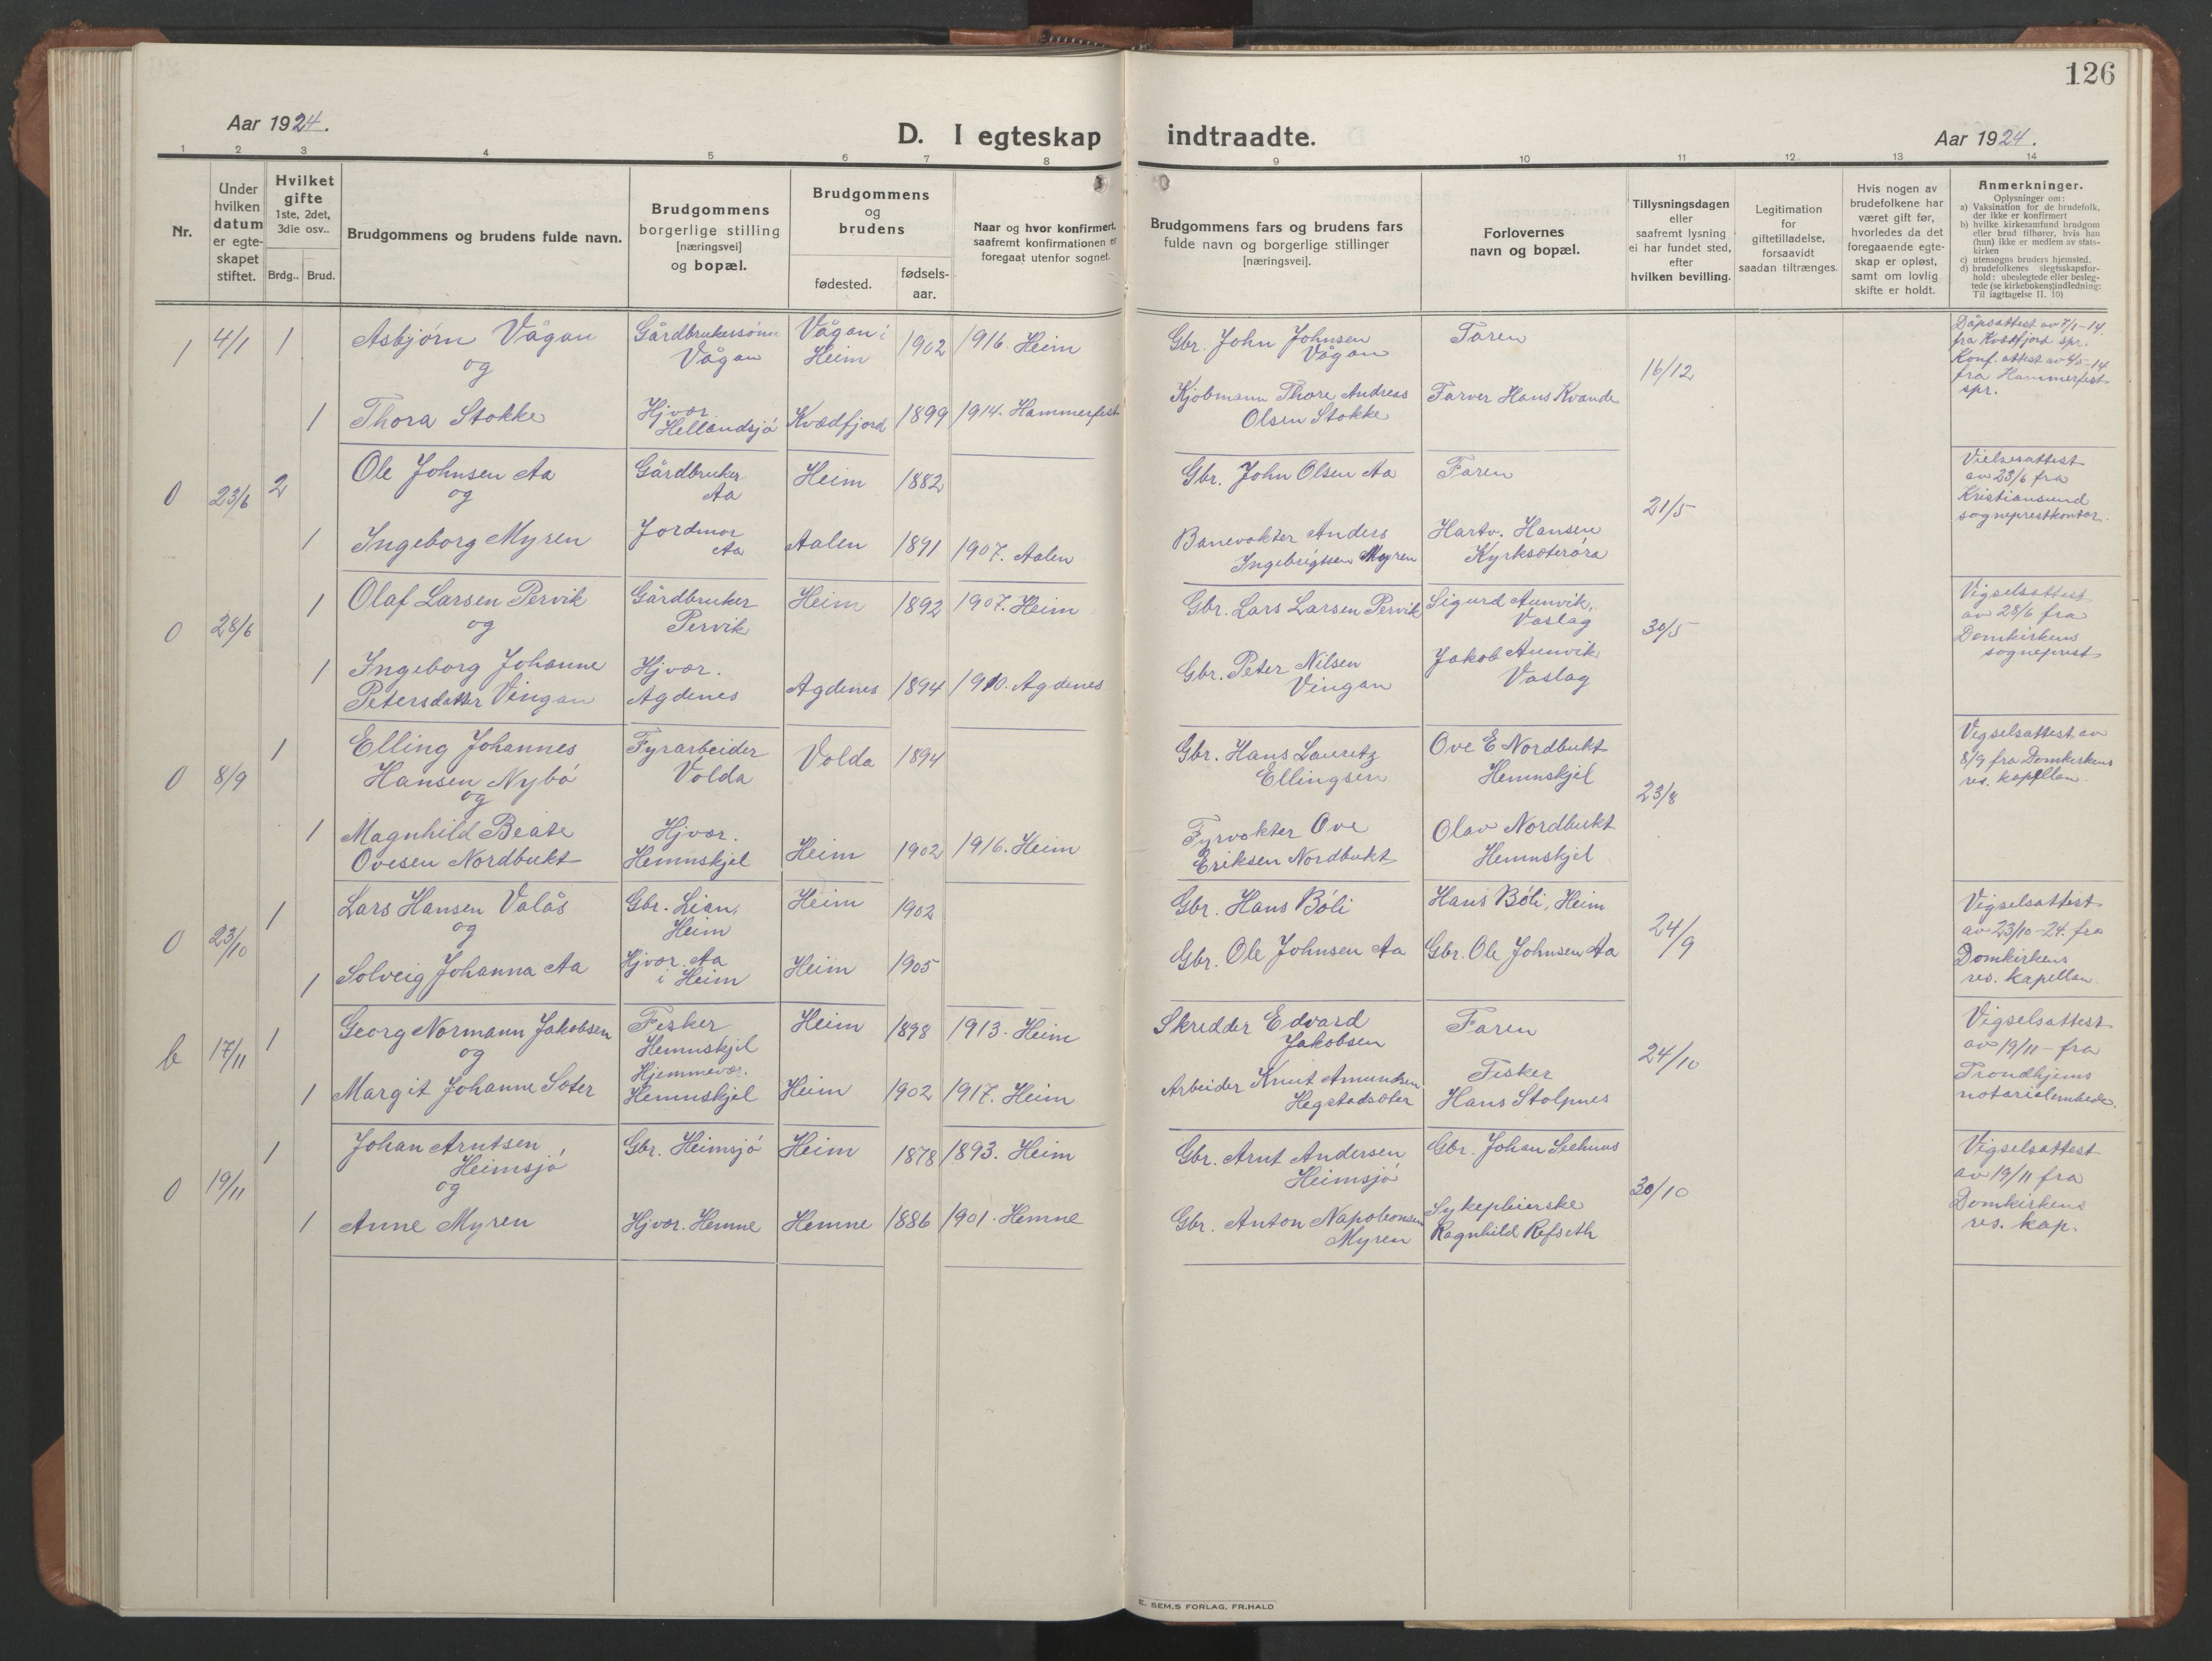 126
Aar 1924.
D. I egteskap indtraadte.
Aar 1924.
1 2 3 4 5 6 7 8 9 10 11 12 13 14
Nr.
Under
hvilken
datum
er egte-
skapet
stiftet.
Hvilket
gifte
1ste, 2det,
3die osv..
Brdg.. Brud.
Brudgommens og brudens fulde navn.
Brudgommens
borgerlige stilling
[næringsvei]
og bopæl.
Brudgommens
og
brudens
fødested.
fødsels-
aar.
Naar og hvor konfirmert,
saafremt konfirmationen er
foregaat utenfor sognet.
Brudgommens fars og brudens fars
fulde navn og borgerlige stillinger
[næringsvei].
Forlovernes
navn og bopæl.
Tillysningsdagen
eller
saafremt lysning
ei har fundet sted,
efter
hvilken bevilling.
Legitimation
for
giftetilladelse,
forsaavidt
saadan tiltrænges.
Hvis nogen av
brudefolkene har
været gift før,
hvorledes da det
foregaaende egte-
skap er opløst,
samt om lovlig
skifte er holdt.
Anmerkninger.
Oplysninger om:
a) Vaksination for de brudefolk,
der ikke er konfirmert
b) hvilke kirkesamfund brudgom
eller brud tilhører, hvis han
(hun) ikke er medlem av stats-
kirken
c) utensogns bruders hjemsted.
d) brudefolkenes slegtsskapsfor-
hold: ubeslegtede eller besleg-
tede (se kirkebokens indledning:
Til iagttagelse II. 10)
1 4/1 1
Asbjørn Vågan
og
Gårdbrukerssønn
Vågan
Vågan i
Heim
1902
1916. Heim
Gbr. John Johnsen
Vågan
Faren
16/12
Dåpsattest av 7/1-14
fra Kvædfjord spr.
Konf. attest av 4/5-14
fra Hammerfest
spr.
1 Thora Stokke
Hjvær.
Hellandsjø
Kvædfjord
1899
1914. Hammerfest
Kjøbmann Thore Andreas
Olsen Stokke
Farver Hans Kvande
0 23/6 2
Ole Johnsen Aa
og
Gårdbruker
Aa
Heim
1882
Gbr. John Olsen Aa
Faren
21/5
Vielsesattest
av 23/6 fra
Kristiansund
sogneprestkontor.
1 Ingeborg Myren
Jordmor
Aa
Aalen
1891
1907. Aalen
Banevokter Anders
Ingebrigtsen Myren
Hartv. Hansen
Kyrksæterøra
0 28/6 1
Olaf Larsen Pervik
og
Gårdbruker
Pervik
Heim
1892
1907. Heim
Gbr. Lars Larsen Pervik
Sigurd Aunvik,
Vaslag
30/5
Vigselsattest
av 28/6 fra
Domkirkens
sogneprest
1 Ingeborg Johanne
Petersdatter Vingan
Hjvær.
Agdenes
Agdenes
1894
1910. Agdenes
Gbr. Peter Nilsen
Vingan
Jakob Aunvik
Vaslag
0 8/9 1
Elling Johannes
Hansen Nybø
og
Fyrarbeider
Volda
Volda
1894
Gbr. Hans Lauritz
Ellingsen
Ove E Nordbukt
Hemnskjel
23/8
Vigselsattest av
8/9 fra Domkirkens
res. kapellan.
1 Magnhild Beate
Ovesen Nordbukt
Hjvær.
Hemnskjel
Heim
1902
1916. Heim
Fyrvokter Ove
Eriksen Nordbukt
Olav Nordbukt
Hemnskjel
0 23/10 1
Lars Hansen Valås
og
Gbr. Lian,
Heim
Heim
1902
Gbr. Hans Bøli
Hans Bøli, Heim
24/9
Vigselsattest
av 23/10-24. fra
Domkirkens
res. kapellan
1 Solveig Johanna Aa
Hjvær. Aa
i Heim
Heim
1905
Gbr. Ole Johnsen Aa
Gbr. Ole Johnsen Aa
b 17/11 1
Georg Normann Jakobsen
og
Fisker
Hemnskjel
Heim
1898
1913. Heim
Skredder Edvard
Jakobsen
Faren
24/10
Vigselsattest
av 19/11 - fra
Trondhjems
notarialembede.
1 Margit Johanne Sæter
Hjemmevær.
Hemnskjel
Heim
1902
1917. Heim
Arbeider Knut Amundsen
Hegstadsæter
Fisker
Hans Stolpnes
0 19/11 1
Johan Arntsen
Heimsjø
og
Gbr. Heimsjø
Heim
1878
1893. Heim
Gbr. Arnt Andersen
Heimsjø
Gbr. Johan Seehuus
30/10
Vigselsattest
av 19/11 fra
Domkirkens
res. kap.
1 Anne Myren
Hjvær. Hemne
Hemne
1886
1901. Hemne
Gbr. Anton Napoleonsen
Myren
Sykepleierske
Ragnhild Refseth
E. SEM.S FORLAG, FR.HALD